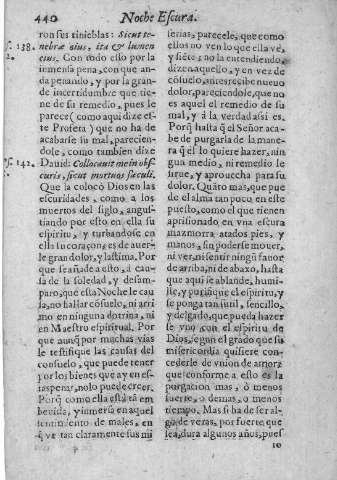 440 Noche Escura.
ron sus tinieblas: Sicut te-
ps. 138. nebræ eius, ita & lumen
eius. Con todo esso por la
inmensa pena, con que an-
da penando, y por la gran-
de incertidumbre que tie-
ne de su remedio, pues le
parece (como aqui dize es-
te Profeta) que no ha de
acabarse su mal, parecien-
dole, como tambien dize
ps. 142. Dauid: Collocauit me in obs-
curis, sicut mortuos sæculi.
Que la colocò Dios en las
escuridades, como a los
muertos del siglo, angus-
tiando por esto en ella su
espiritu, y turbandose en
ella su coraçon, es de auer-
le gran dolor, y lastima. Por
que se añade a esto, â cau-
sa de la soledad, y desam-
paro, que esta Noche le cau-
sa, no hallar cõsuelo, ni arri
mo en ninguna dotrina, ni
en Maestro espiritual. Por
que aunq̃ por muchas vias
le testifique las causas del
consuelo, que puede tener
por los bienes que ay en es-
tas penas, no lo puede creer.
Porq̃ como ella està tã em
beuida, y inmersa en aquel
sentimiento de males, en
q̃ ve tan claramente sus mi
serias, parecele, que como
ellos no ven lo que ella ve,
y siẽte, no la entendiendo,
dizen aquello, y en vez de
cõsuelo, antes recibe nueuo
dolor, pareciendole, que no
es aquel el remedio de su
mal, y á la verdad assi es.
Porq̃ hasta q̃ el Señor aca-
be de purgarla de la mane-
ra q̃ el lo quiere hazer, nin
gun medio, ni remedio le
sirue, y aprouecha para su
dolor. Quãto mas, que pue
de el alma tan poco en este
puesto, como el que tienen
aprisionado en vna escura
mazmorra atados pies, y
manos, sin poderse mouer,
ni ver, ni sentir ningũ fauor
de arriba, ni de abaxo, hasta
que aqui se ablande, humi-
lle, y purifique el espiritu, y
se ponga tan sutil, sencillo,
y delgado, que pueda hazer
se vno con el espiritu de
Dios, segun el grado que su
misericordia quisiere conce-
cederle de vnion de amor:
que conforme a esto es la
purgacion mas, ò menos
fuerte, o demas, o menos
tiempo. Mas si ha de ser al-
go de veras, por fuerte que
sea, dura algunos años, pues